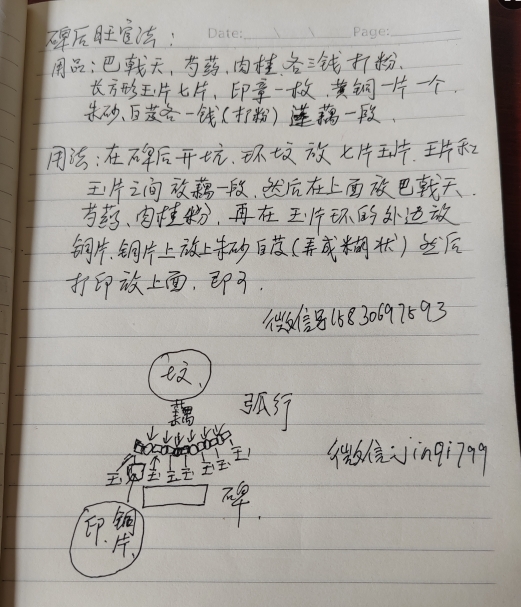 碑后旺官法：
Date: \ \ Page:
用品：巴戟天，芍药，肉桂，各三钱打粉，
长方形玉片七片，印章一枚，黄铜一片一个，
朱砂、白芨各一钱（打粉）莲藕一段，
用法：在碑后开坑，环坟放七片玉片，玉片和
玉片之间放藕一段，然后在上面放巴戟天、
芍药、肉桂粉，再在玉片环的外边放
铜片，铜片上放上朱砂白芨（弄成糊状）然后
打印放上面，即可，
微信号15830697593
坟
藕
弧行
玉 玉 玉 玉 玉 玉 玉
微信：jinqi799
碑
印、铜片